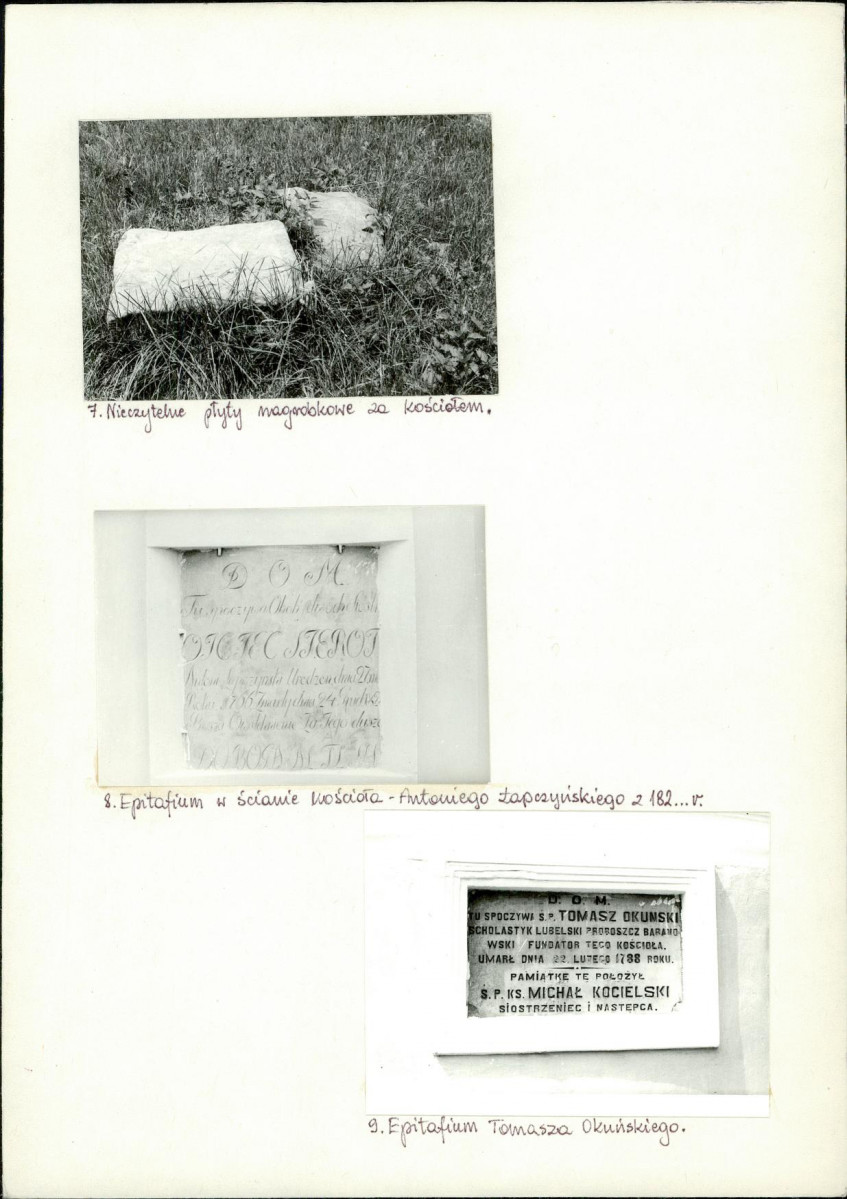 7. Nieczytelne płyty nagrobkowe za kościołem.
D O M
Tu spoczywa
OYCIEC SIEROT
Urodzony dnia 27
Roku 1755 Zmarły dnia 24
Za Jego duszę
8. Epitafium w ścianie kościoła - Antoniego Łapczyńskiego z 182...r.
D. O. M.
TU SPOCZYWA Ś.P. TOMASZ OKUNSKI
SCHOLASTYK LUBELSKI PROBOSZCZ BARANO
WSKI FUNDATOR TEGO KOŚCIOŁA.
UMARŁ DNIA 22 LUTEGO 1788 ROKU.
PAMIĄTKĘ TĘ POŁOŻYŁ
Ś.P. KS. MICHAŁ KOCIELSKI
SIOSTRZENIEC I NASTĘPCA.
9. Epitafium Tomasza Okuńskiego.